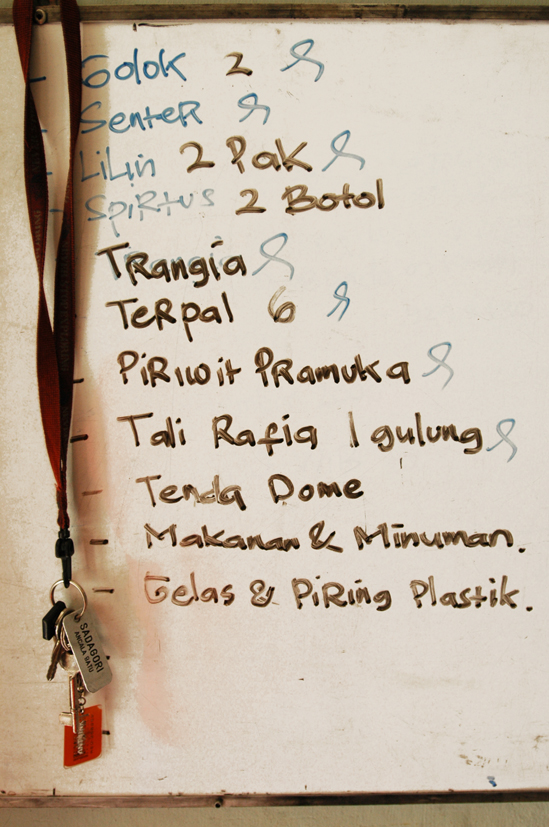 - Golok 2
- Senter
- Lilin 2 Pak
- Spirtus 2 Botol
Trangia
Terpal 6
- Piriwit Pramuka
- Tali Rafia 1 gulung
- Tenda Dome
- Makanan & Minuman.
- Gelas & Piring Plastik.
SADAGORI
ANCALA SATU